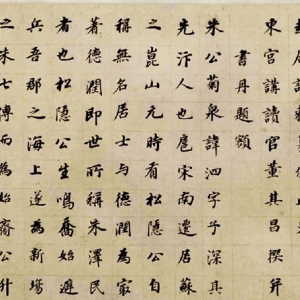 東宮講讀官董其昌撰幷
書丹題額
朱公菊泉諱泗字子深其
先汴人也扈宋南遷居蘇
之崑山元時有松隱公自
稱無名居士與德潤為冣
著德潤即世所稱朱澤民
者也松隱公生鳴喬始避
兵吾郡之海上遂為新場
之朱七傳而為始齋公升